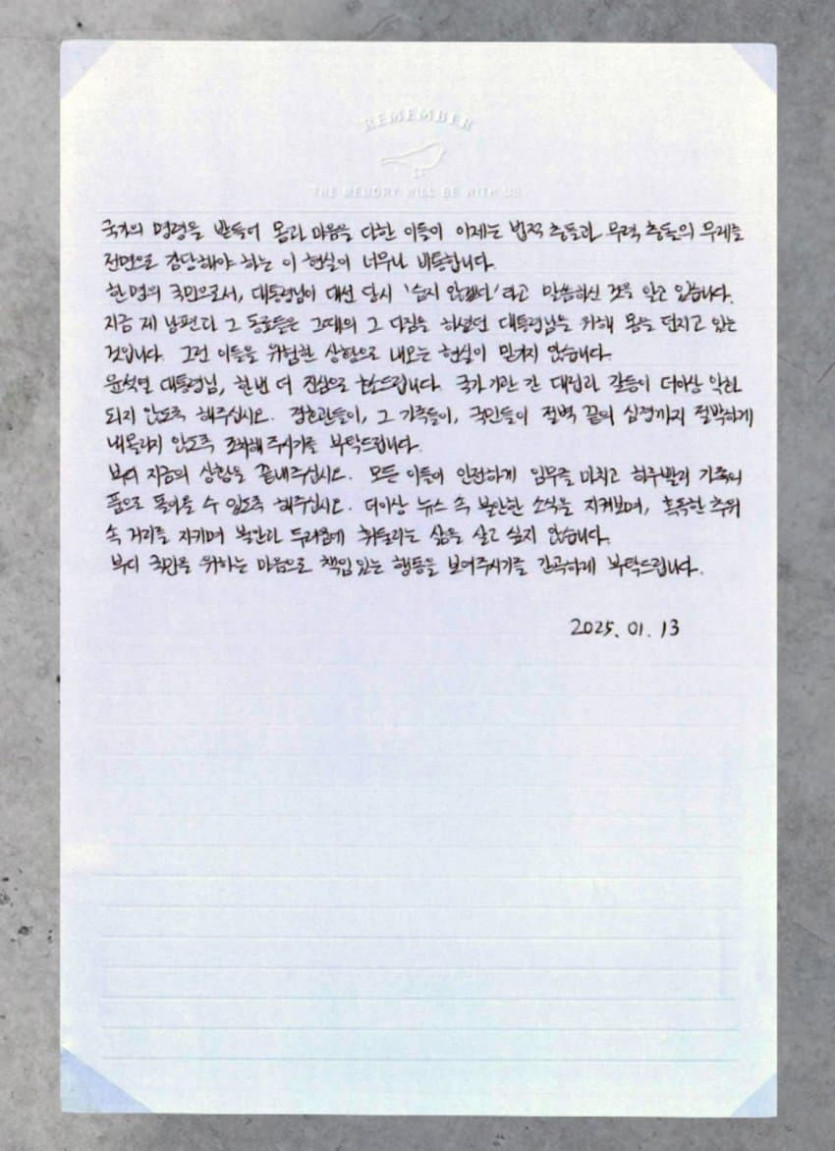 REMEMBER
THE MEMORY WILL BE WITH US
국가의 명령을 받들어 몸과 마음을 다한 이들이 이제는 법적 충돌과 무력 충돌의 무게를
전면으로 감당해야 하는 이 현실이 너무나 비통합니다.
한 명의 국민으로서, 대통령님이 대선 당시 '숨지 않겠다'라고 말씀하신 것을 알고 있습니다.
지금 제 남편과 그 동료들은 그때의 그 다짐을 하셨던 대통령님을 위해 몸을 던지고 있는
것입니다. 그런 이들을 위험한 상황으로 내모는 현실이 믿기지 않습니다.
윤석열 대통령님, 한번 더 진심으로 호소드립니다. 국가 기관 간 대립과 갈등이 더이상 악화
되지 않도록 해주십시오. 경호관들이, 그 가족들이, 국민들이 절벽 끝의 심정까지 절박하게
내몰리지 않도록 조치해 주시기를 부탁드립니다.
부디 지금의 상황을 끝내주십시오. 모든 이들이 안전하게 임무를 마치고 하루빨리 가족의
품으로 돌아올 수 있도록 해주십시오. 더이상 뉴스 속 불안한 소식을 지켜보며, 혹독한 추위
속 거리를 지키며 불안과 두려움에 휘둘리는 삶을 살고 싶지 않습니다.
부디 국민을 위하는 마음으로 책임 있는 행동을 보여주시기를 간곡하게 부탁드립니다.
2025. 01. 13